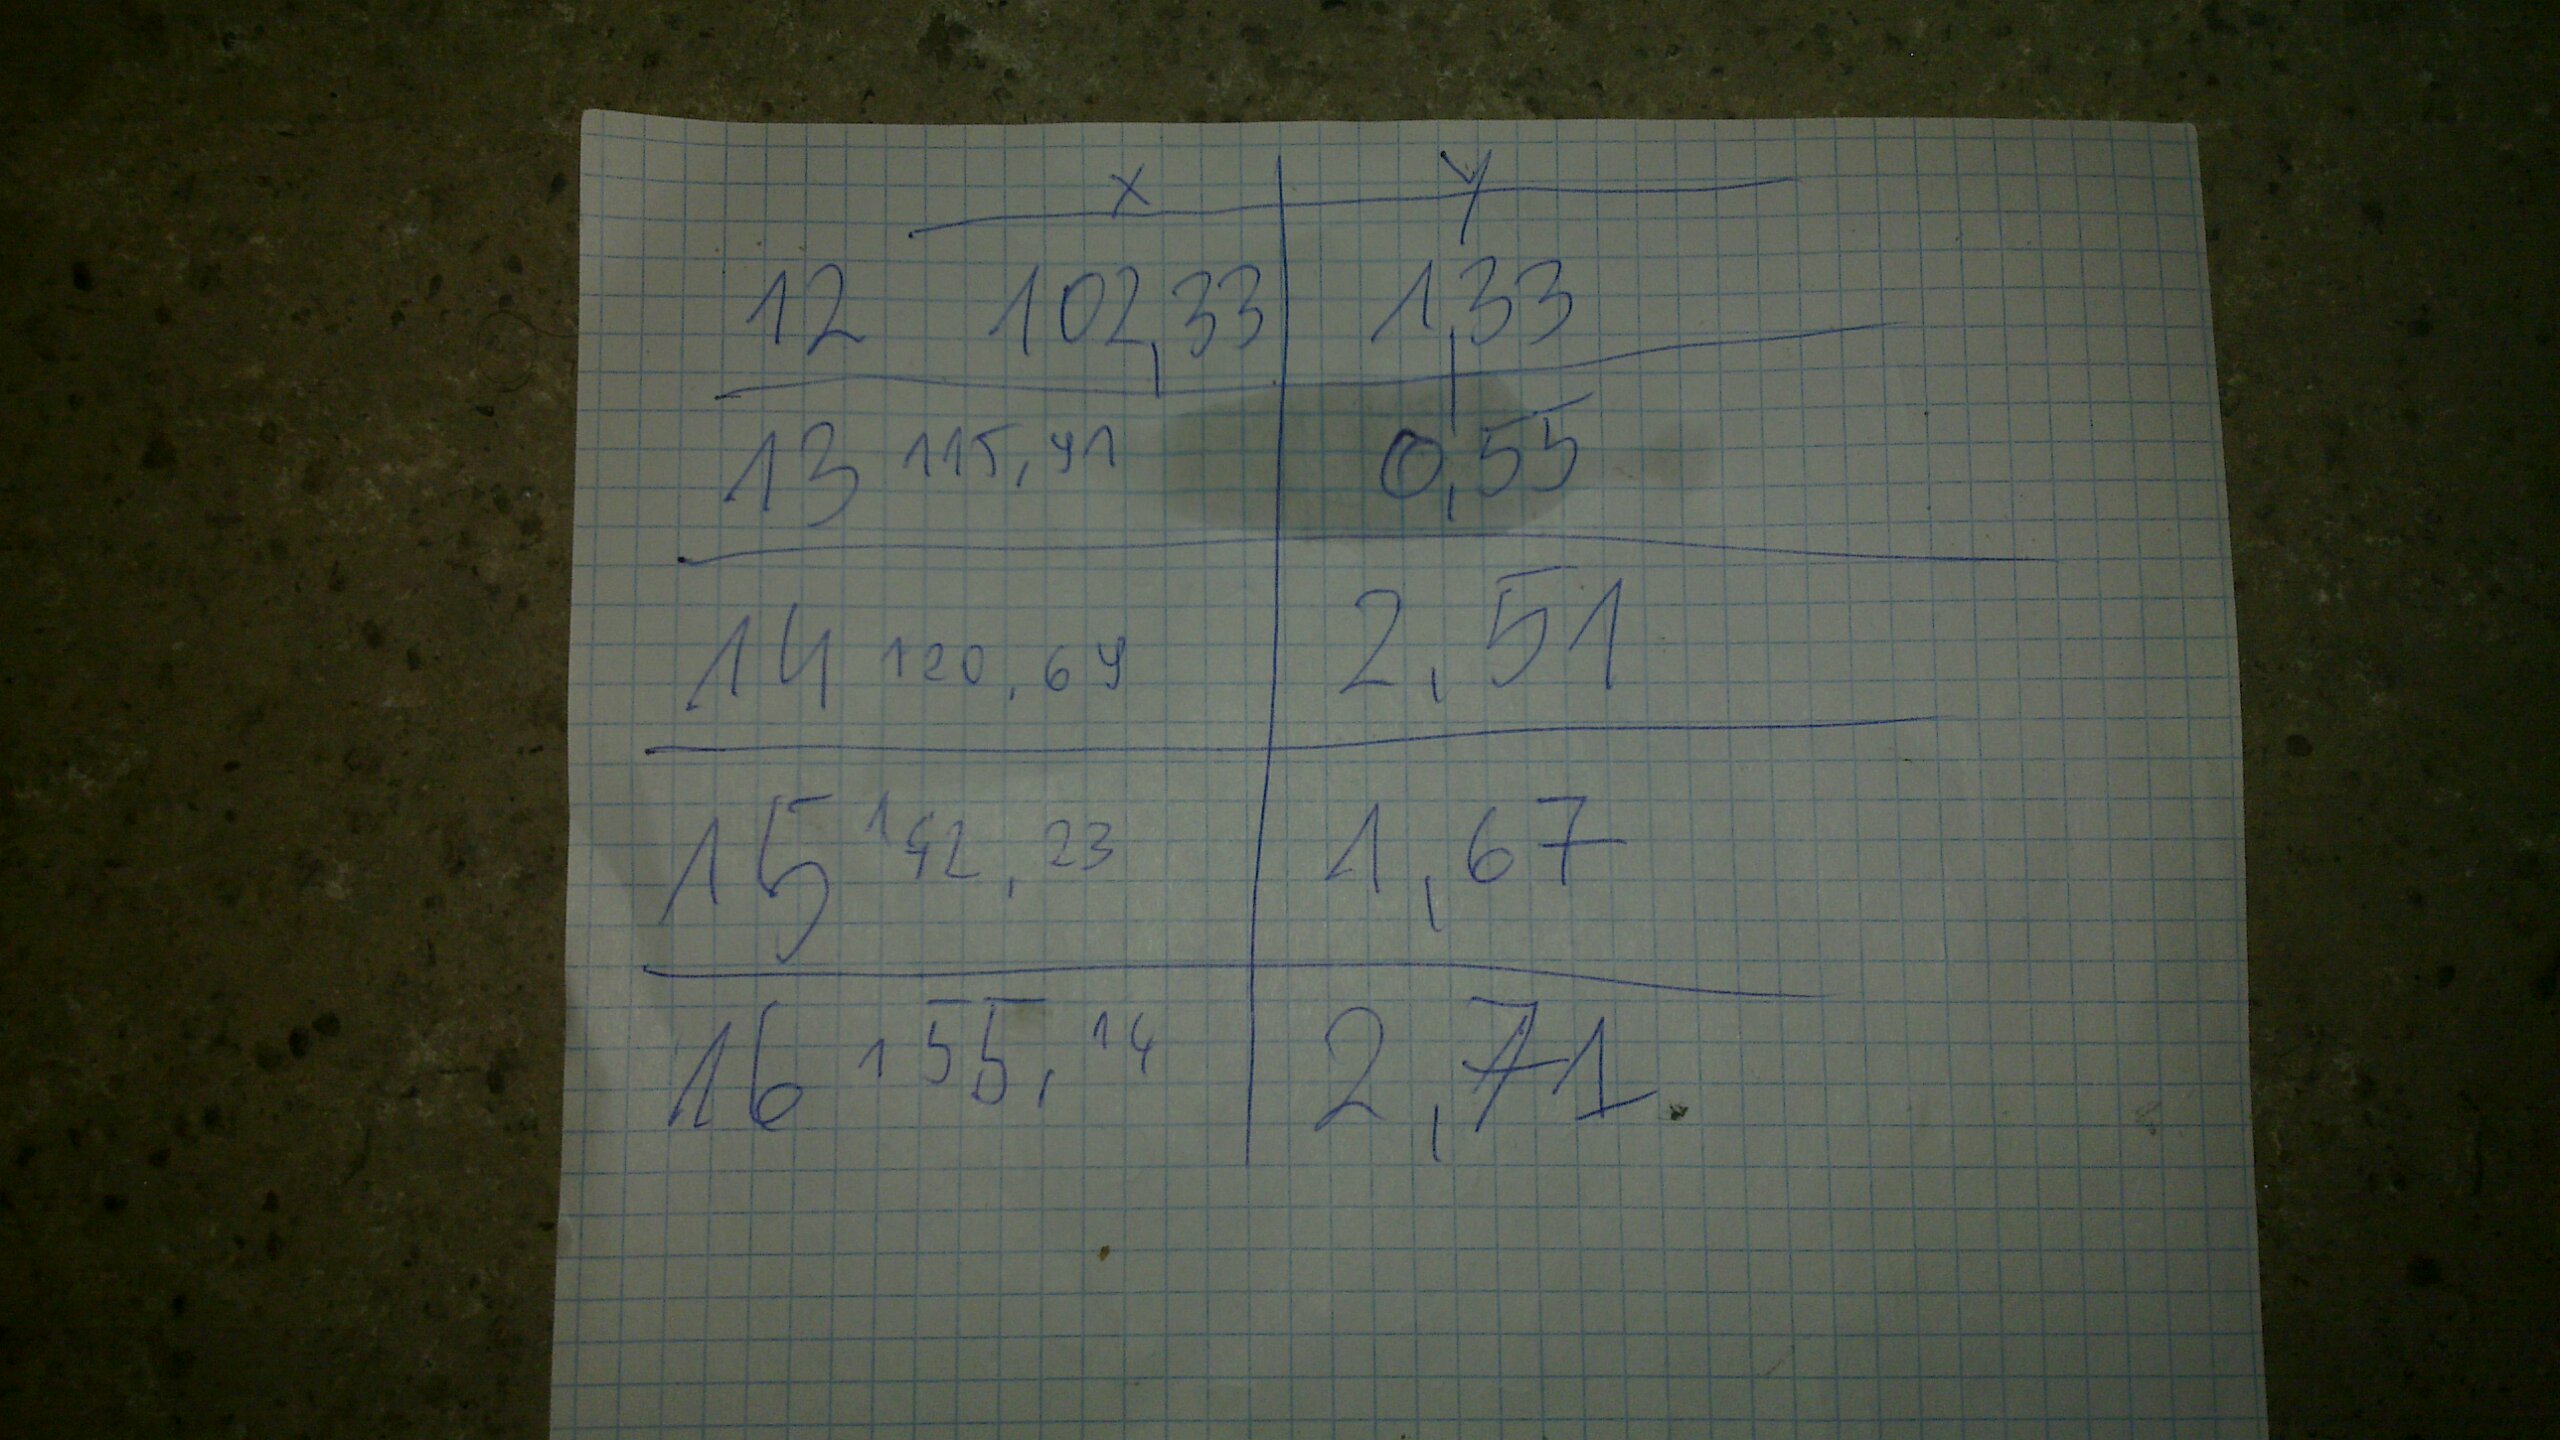 x y
12 102,33 1,33
13 115,41 0,55
14 120,64 2,51
15 142,23 1,67
16 155,14 2,71